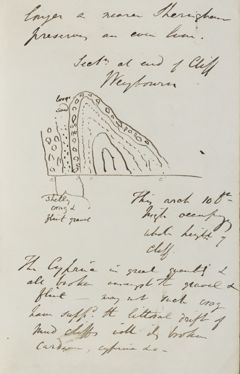 longer a nearer Sheringham
preserving an even line.
Sectn at end of Cliff
Weybourn
loose
sand
Shelly
crag &
flint gravel
This arch 10 ft
high occupying
whole height of
cliff
The Cyprina in great quantity &
all broken amongst the gravel &
flint – may not such crag
have suppld the littoral drift of
mud cliffs with dry broken
Cardium, cyprina &c